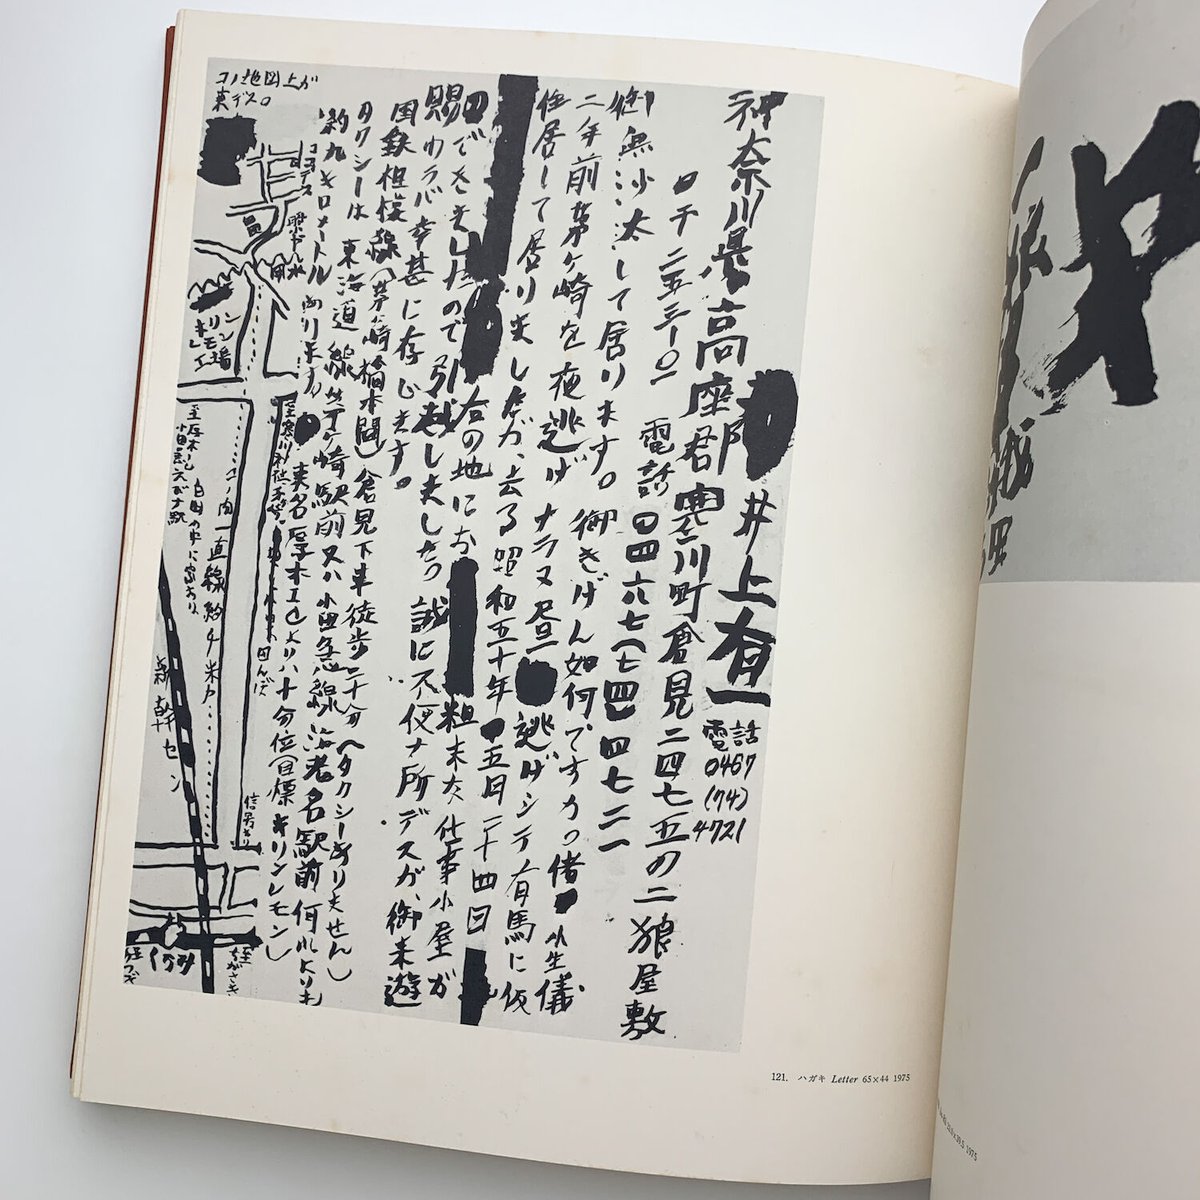 神奈川県高座郡寒川町倉見二四七五の二狼屋敷
井上有一
電話
0467
(74)
4721
〒二五三-〇一 電話〇四六七(七四)四七二一
御無沙汰して居ります。御きげん如何ですか。偖小生儀
二年前茅ヶ崎を夜逃げナラヌ昼逃げシテ有馬に仮
住居して居りましたが、去る昭和五十年五月二十四日
右の地にお粗末な仕事小屋が
できましたので引越しました。誠に不便ナ所デスガ、御来遊
賜わラバ幸甚に存じます。
国鉄相模線(茅ヶ崎橋本間)倉見下車徒歩二十分(タクシーありません)
タクシーは東海道線茅ヶ崎駅前又ハ小田急線海老名駅前何れよりも
約九キロメートル
東名厚木ICより八十分位(目標キリンレモン)
コノ地図上が
東デス。
キリン
レモン
工場
コノ間一直線約千米
田んぼ
信号あり
新幹セン
くらみ
至ちがさき
121. ハガキ Letter 65×44 1975